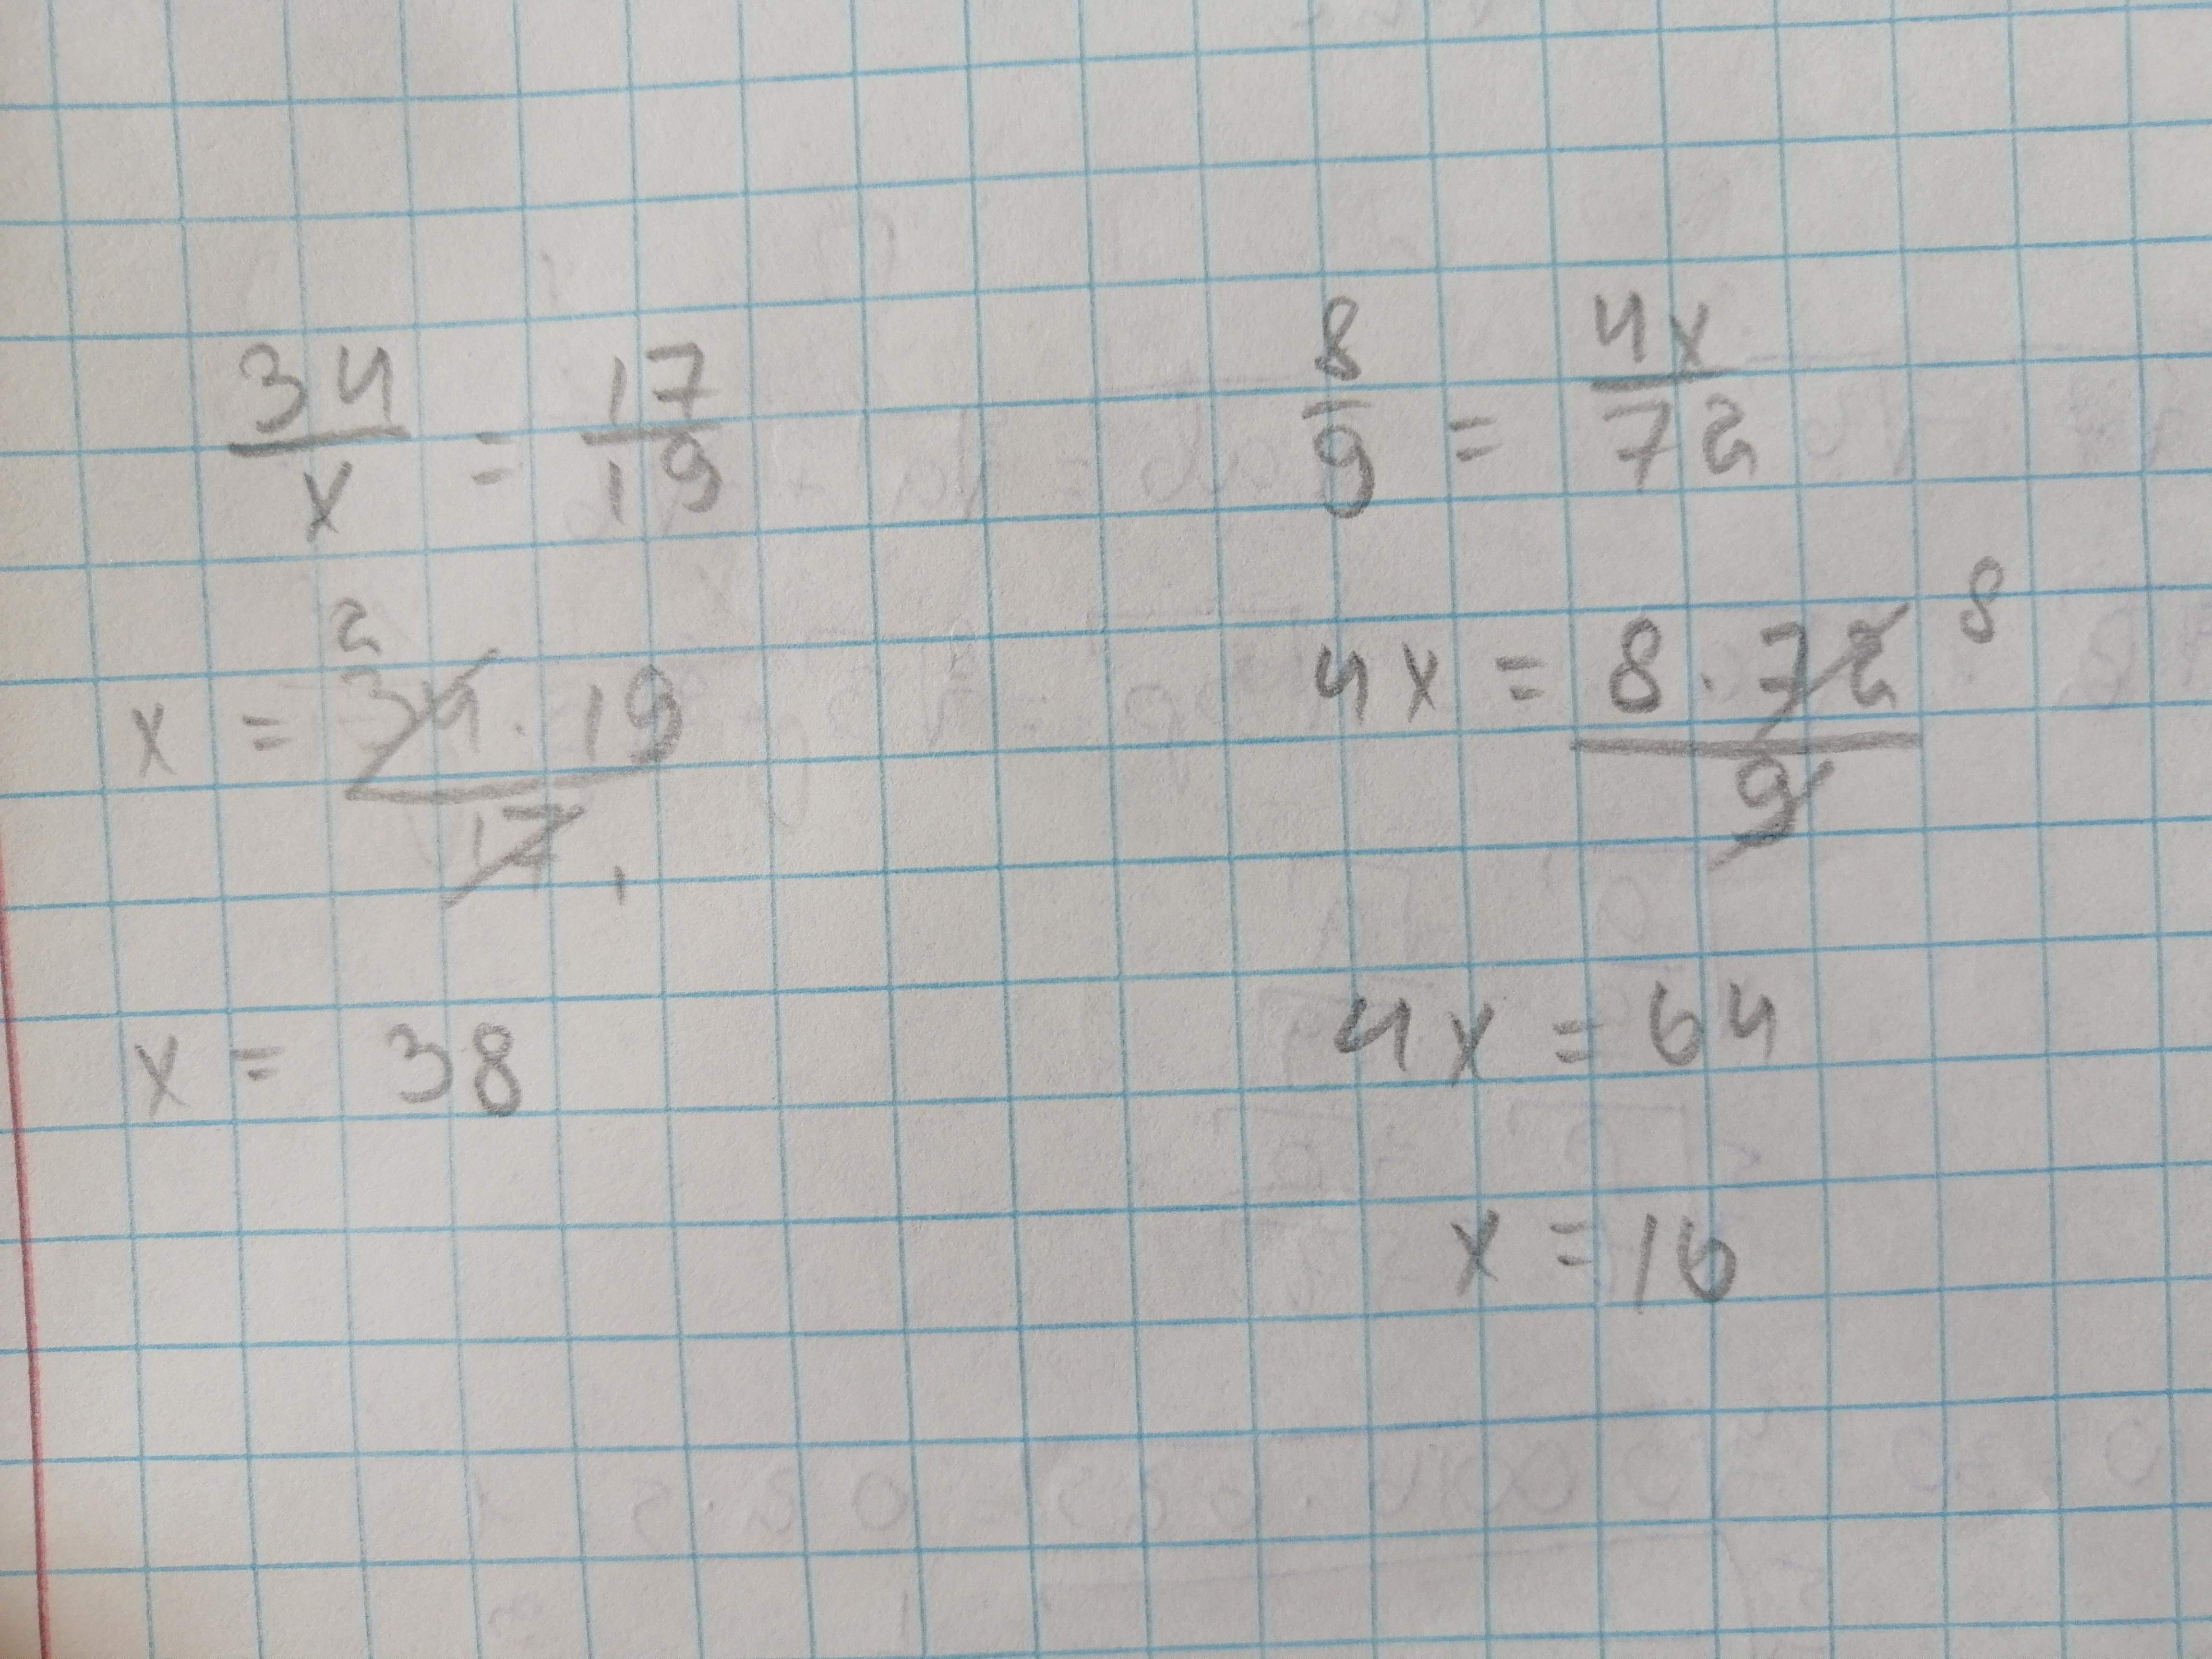 34/x = 17/19
x = 34 · 19 / 17
2
1
x = 38
8/9 = 4x/72
4x = 8 · 72 / 9
8
4x = 64
x = 16